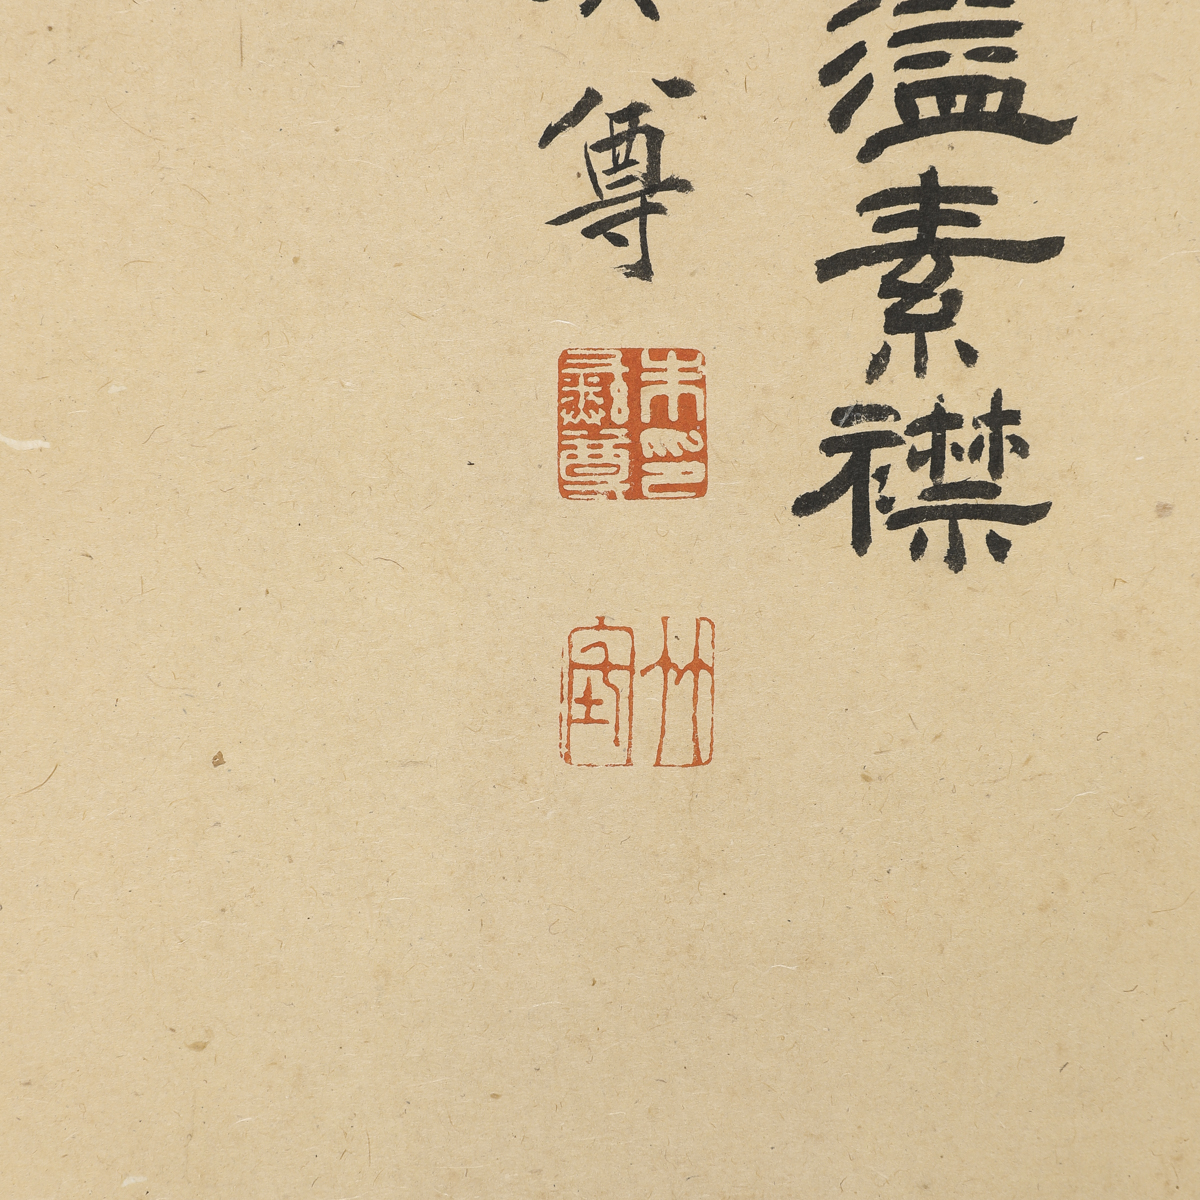 溢素襟
尊
朱彝尊印
竹垞